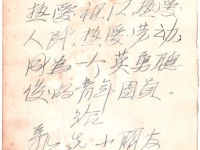 热爱祖国,热爱
人民,热爱劳动;
成为一个英勇
的青年团员。
给
小朋友